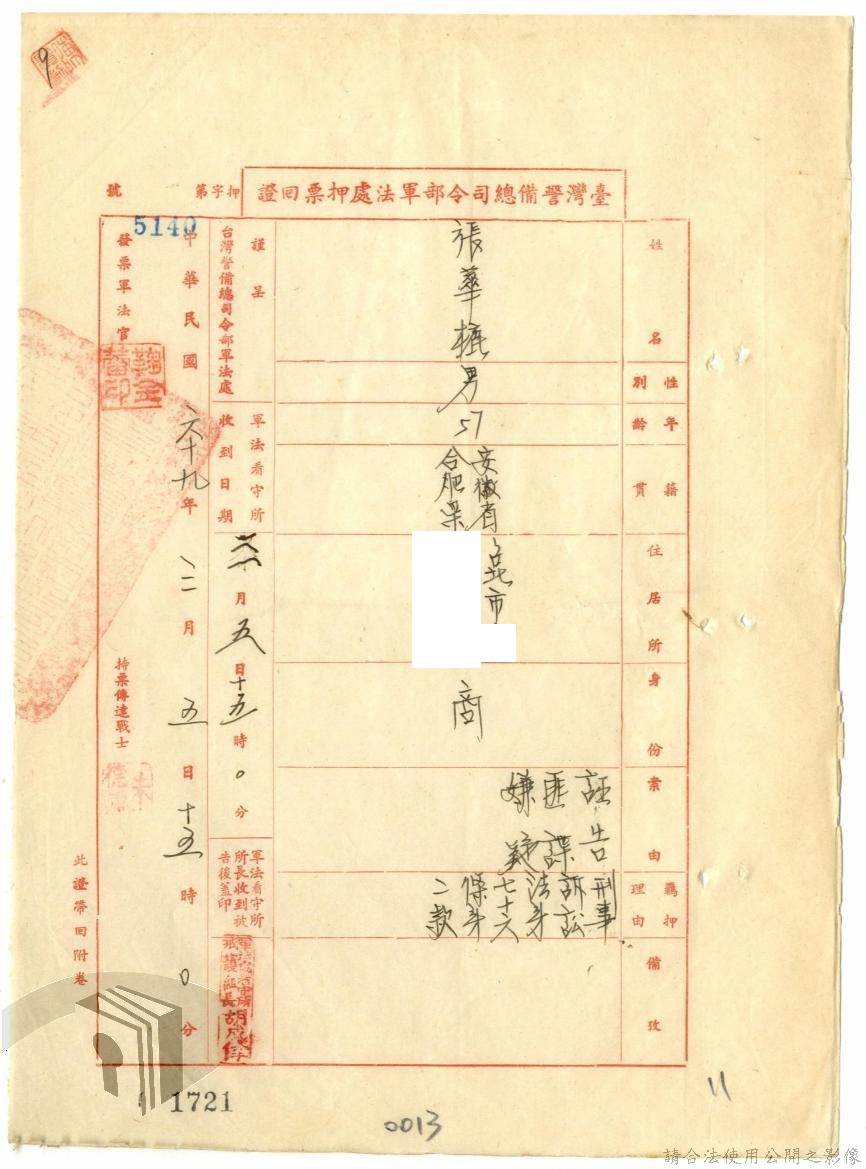 9
臺灣警備總司令部軍法處押票回證
押字第
號
5140
姓名
張華
性別
男
年齡
57
籍貫
安徽省
合肥
住居所
市
身份
商
案由
誣告
匪諜
嫌疑
羈押理由
刑事
訴訟
法第
七十六
條第
二款
備攷
謹呈
台灣警備總司令部軍法處
軍法看守所
收到日期
月五日十五時0分
軍法看守所
所長收到被
告後蓋印
中華民國六十九年二月五日十五時0分
發票軍法官
持票傳達戰士
此證帶回附卷
1721
0013
11
請合法使用公開之影像